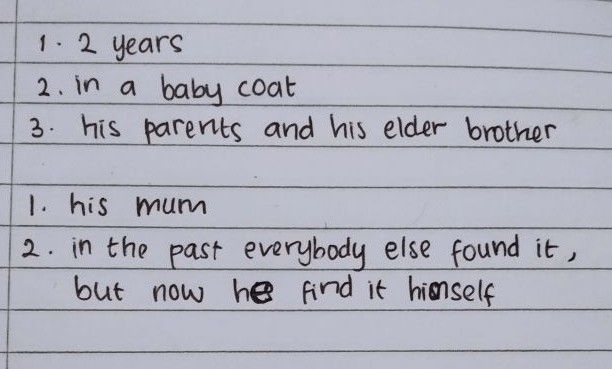 1. 2 years
2. in a baby coat
3. his parents and his elder brother
1. his mum
2. in the past everybody else found it,
but now he find it himself